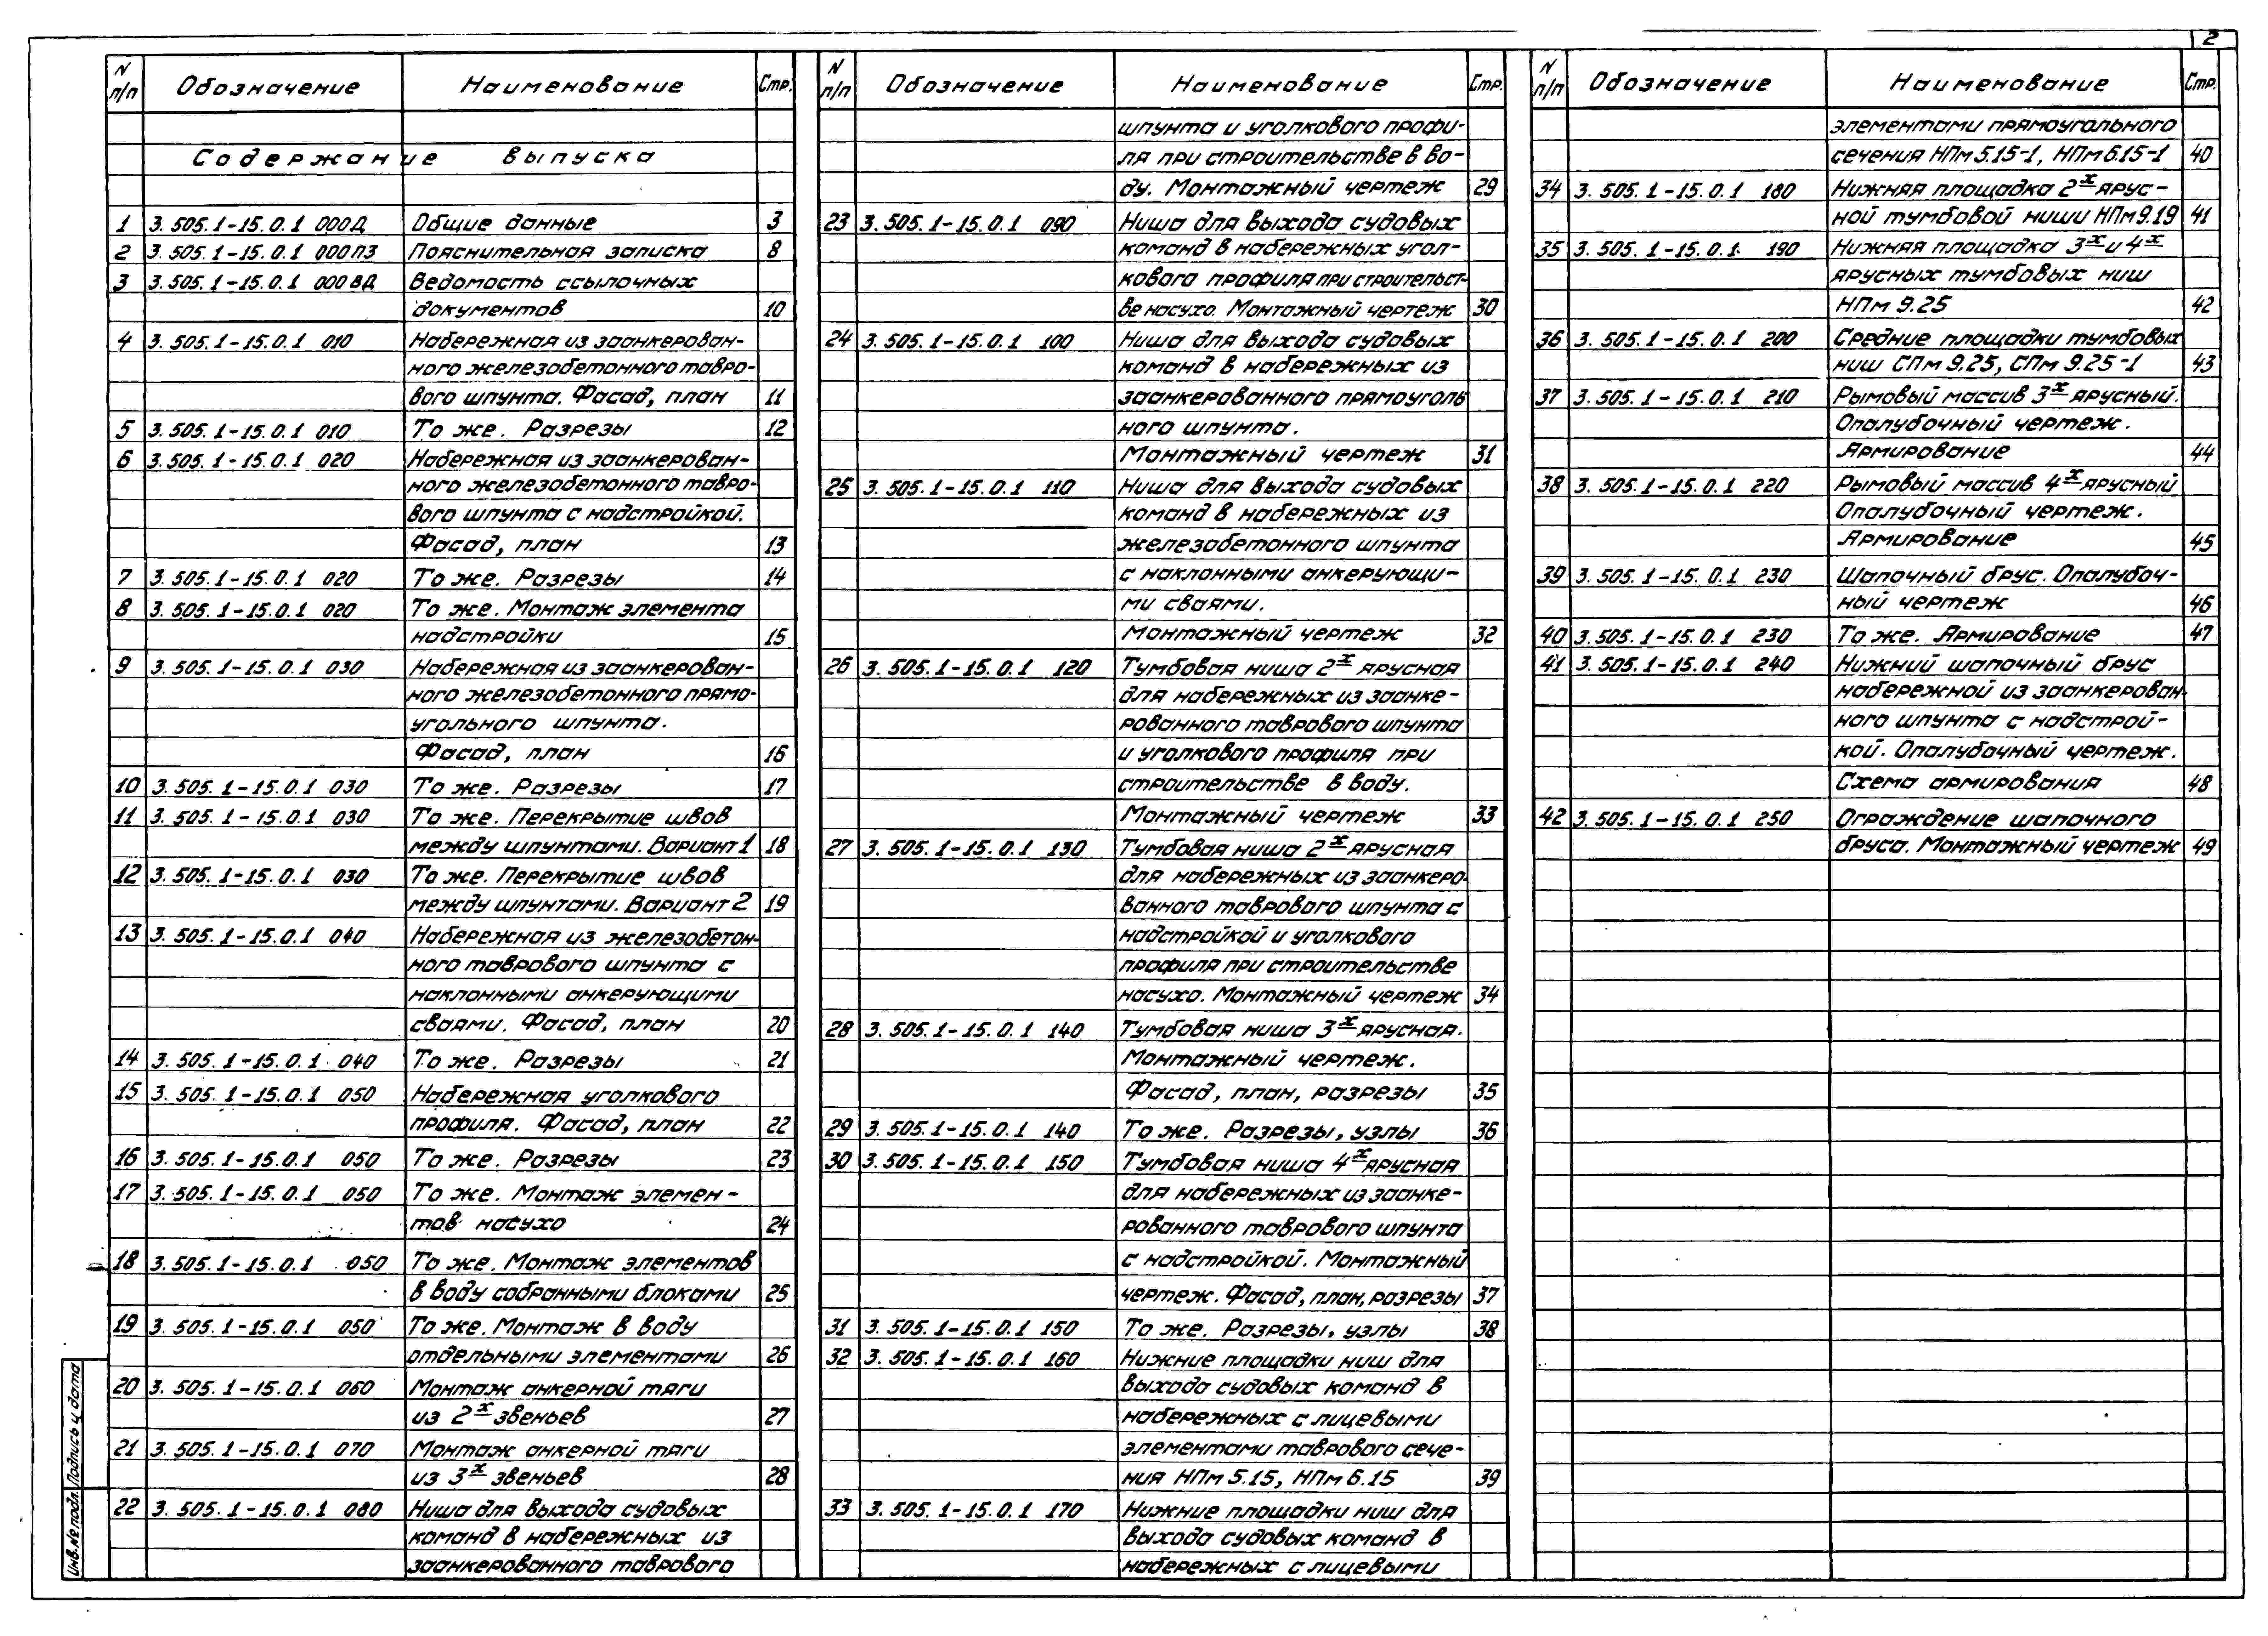 2
N п/п Обозначение Наименование Стр.
Содержание выпуска
1 3.505.1-15.0.1 000Д Общие данные 3
2 3.505.1-15.0.1 000ПЗ Пояснительная записка 8
3 3.505.1-15.0.1 000ВД Ведомость ссылочных
документов 10
4 3.505.1-15.0.1 010 Набережная из заанкерован-
ного железобетонного тавро-
вого шпунта. Фасад, план 11
5 3.505.1-15.0.1 010 То же. Разрезы 12
6 3.505.1-15.0.1 020 Набережная из заанкерован-
ного железобетонного тавро-
вого шпунта с надстройкой.
Фасад, план 13
7 3.505.1-15.0.1 020 То же. Разрезы 14
8 3.505.1-15.0.1 020 То же. Монтаж элемента
надстройки 15
9 3.505.1-15.0.1 030 Набережная из заанкерован-
ного железобетонного прямо-
угольного шпунта.
Фасад, план 16
10 3.505.1-15.0.1 030 То же. Разрезы 17
11 3.505.1-15.0.1 030 То же. Перекрытие швов
между шпунтами. Вариант 1 18
12 3.505.1-15.0.1 030 То же. Перекрытие швов
между шпунтами. Вариант 2 19
13 3.505.1-15.0.1 040 Набережная из железобетон-
ного таврового шпунта с
наклонными анкерующими
сваями. Фасад, план 20
14 3.505.1-15.0.1 040 То же. Разрезы 21
15 3.505.1-15.0.1 050 Набережная уголкового
профиля. Фасад, план 22
16 3.505.1-15.0.1 050 То же. Разрезы 23
17 3.505.1-15.0.1 050 То же. Монтаж элемен-
тов насухо 24
18 3.505.1-15.0.1 050 То же. Монтаж элементов
в воду собранными блоками 25
19 3.505.1-15.0.1 050 То же. Монтаж в воду
отдельными элементами 26
20 3.505.1-15.0.1 060 Монтаж анкерной тяги
из 2х звеньев 27
21 3.505.1-15.0.1 070 Монтаж анкерной тяги
из 3х звеньев 28
22 3.505.1-15.0.1 080 Ниша для выхода судовых
команд в набережных из
заанкерованного таврового
N п/п Обозначение Наименование Стр.
шпунта и уголкового профи-
ля при строительстве в во-
ду. Монтажный чертеж 29
23 3.505.1-15.0.1 090 Ниша для выхода судовых
команд в набережных угол-
кового профиля при строительст-
ве насухо. Монтажный чертеж 30
24 3.505.1-15.0.1 100 Ниша для выхода судовых
команд в набережных из
заанкерованного прямоуголь
ного шпунта.
Монтажный чертеж 31
25 3.505.1-15.0.1 110 Ниша для выхода судовых
команд в набережных из
железобетонного шпунта
с наклонными анкерующи-
ми сваями.
Монтажный чертеж 32
26 3.505.1-15.0.1 120 Тумбовая ниша 2х ярусная
для набережных из заанке-
рованного таврового шпунта
и уголкового профиля при
строительстве в воду.
Монтажный чертеж 33
27 3.505.1-15.0.1 130 Тумбовая ниша 2х ярусная
для набережных из заанкеро-
ванного таврового шпунта с
надстройкой и уголкового
профиля при строительстве
насухо. Монтажный чертеж 34
28 3.505.1-15.0.1 140 Тумбовая ниша 3х ярусная.
Монтажный чертеж.
Фасад, план, разрезы 35
29 3.505.1-15.0.1 140 То же. Разрезы, узлы 36
30 3.505.1-15.0.1 150 Тумбовая ниша 4х ярусная
для набережных из заанке-
рованного таврового шпунта
с надстройкой. Монтажный
чертеж. Фасад, план, разрезы 37
31 3.505.1-15.0.1 150 То же. Разрезы, узлы 38
32 3.505.1-15.0.1 160 Нижние площадки ниш для
выхода судовых команд в
набережных с лицевыми
элементами таврового сече-
ния НПм 5.15, НПм 6.15 39
33 3.505.1-15.0.1 170 Нижние площадки ниш для
выхода судовых команд в
набережных с лицевыми
N п/п Обозначение Наименование Стр.
элементами прямоугольного
сечения НПм 5.15-1, НПм 6.15-1 40
34 3.505.1-15.0.1 180 Нижняя площадка 2х ярус-
ной тумбовой ниши НПм 9.19 41
35 3.505.1-15.0.1 190 Нижняя площадка 3х и 4х
ярусных тумбовых ниш
НПм 9.25 42
36 3.505.1-15.0.1 200 Средние площадки тумбовых
ниш СПм 9.25, СПм 9.25-1 43
37 3.505.1-15.0.1 210 Рымовый массив 3х ярусный.
Опалубочный чертеж.
Армирование 44
38 3.505.1-15.0.1 220 Рымовый массив 4х ярусный
Опалубочный чертеж.
Армирование 45
39 3.505.1-15.0.1 230 Шапочный брус. Опалубоч-
ный чертеж 46
40 3.505.1-15.0.1 230 То же. Армирование 47
41 3.505.1-15.0.1 240 Нижний шапочный брус
набережной из заанкерован-
ного шпунта с надстрой-
кой. Опалубочный чертеж.
Схема армирования 48
42 3.505.1-15.0.1 250 Ограждение шапочного
бруса. Монтажный чертеж 49
Инв.№ подл. Подпись и дата